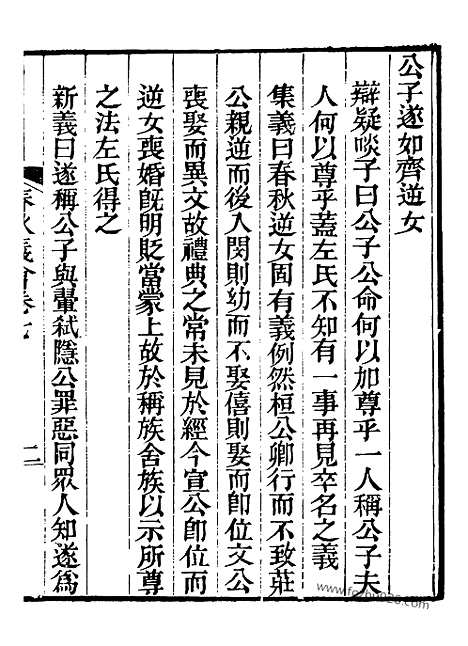 公子遂如齊逆女
辯疑啖子曰公子公命何以加尊乎一人稱公子夫
人何以尊乎蓋左氏不知有一事再見卒名之義
集義曰春秋逆女固有義例然桓公卿行而不致莊
公親逆而後入閔則幼而不娶僖則娶而卽位文公
喪娶而異文故禮典之常未見於經今宣公卽位而
逆女喪婚旣明貶當蒙上故於稱族舍族以示所尊
之法左氏得之
新義曰遂稱公子與翬弒隱公罪惡同眾人知遂爲
春秋義會卷七
二